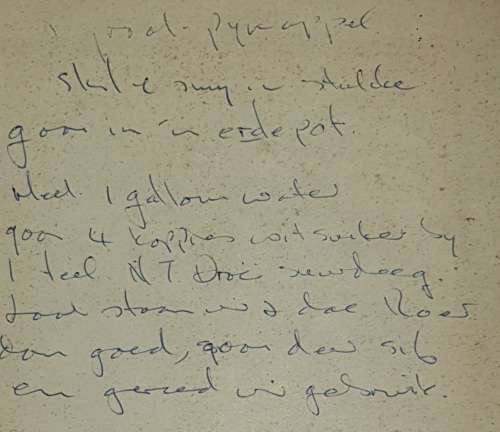 1 groot pynappel
Skil & sny in stukke
gooi in 'n erdepot.
Meet 1 gallon water
gooi 4 koppies witsuiker by
1 teel NT Droë suurdeeg.
Laat staan vir 3 dae Roer
dan goed, gooi deur sif
en gereed vir gebruik.